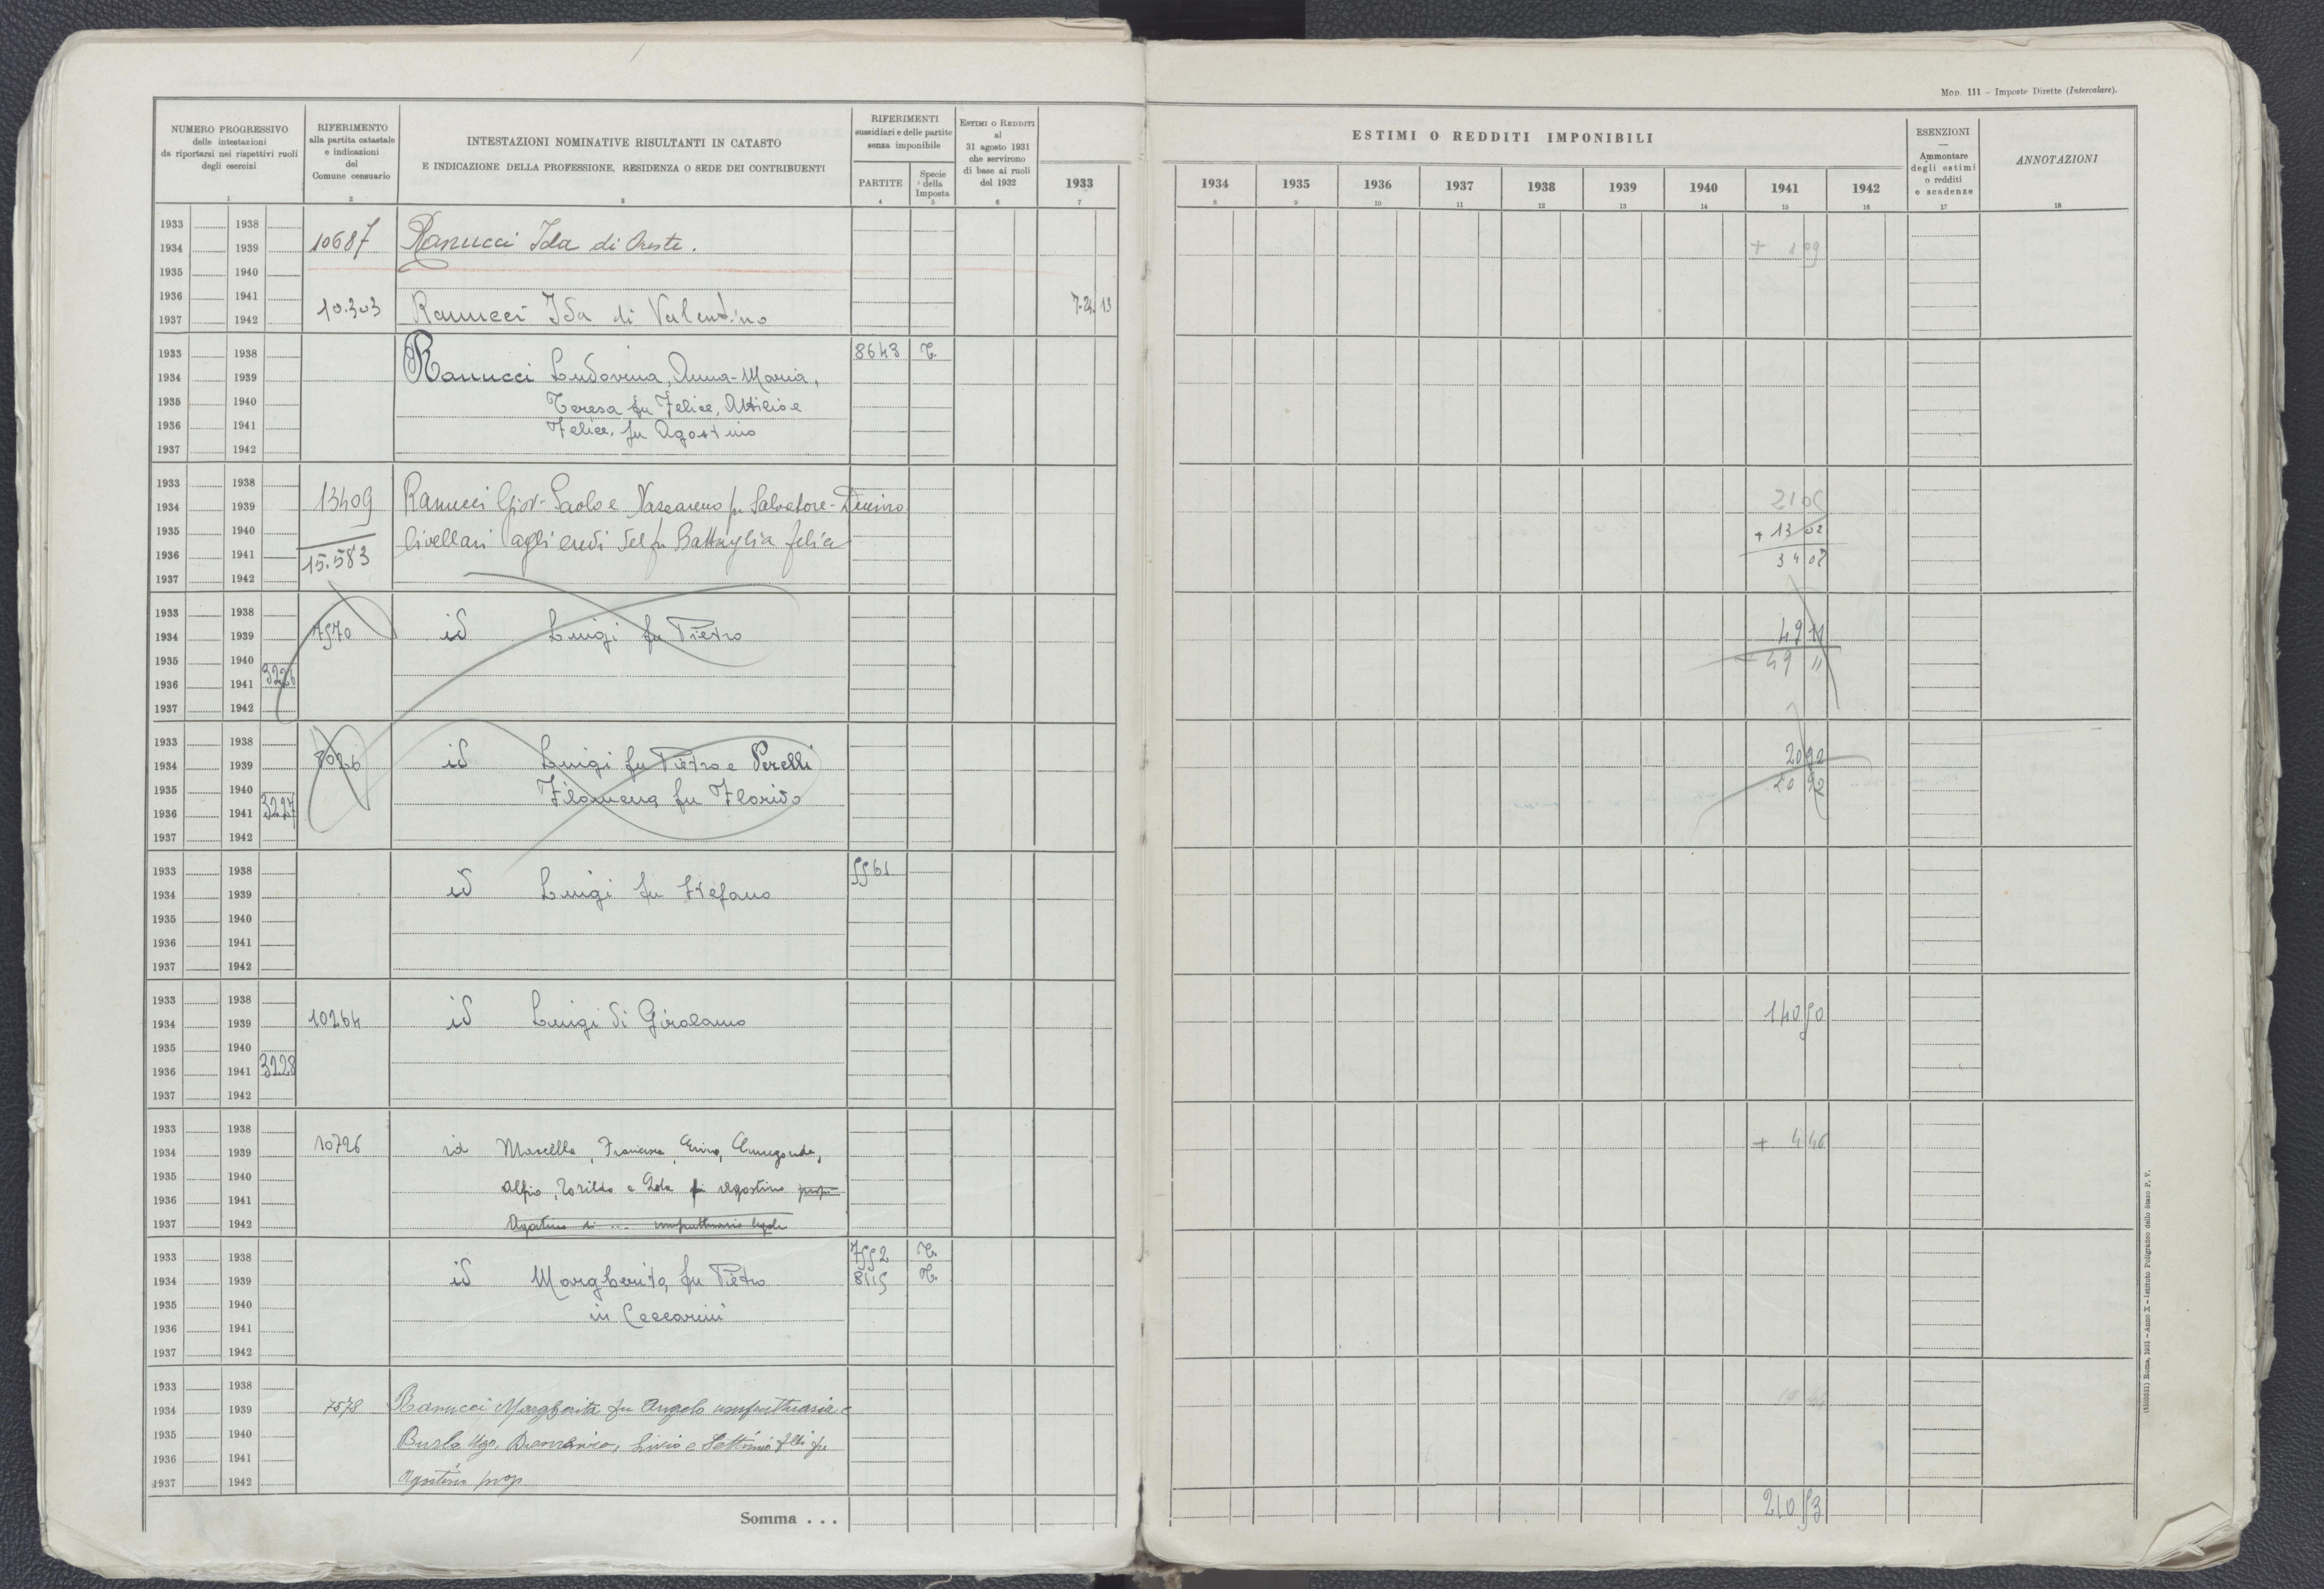 Mod. 111 - Imposte Dirette (Intercalare).
NUMERO PROGRESSIVO
delle intestazioni
da riportarsi nei rispettivi ruoli
degli esercizi
RIFERIMENTO
alla partita catastale
e indicazioni
del
Comune censuario
INTESTAZIONI NOMINATIVE RISULTANTI IN CATASTO
E INDICAZIONE DELLA PROFESSIONE, RESIDENZA O SEDE DEI CONTRIBUENTI
RIFERIMENTI
sussidiari e delle partite
senza imponibile
PARTITE
Specie
della
Imposta
Estimi o Redditi
al
31 agosto 1931
che servirono
di base ai ruoli
del 1932
ESTIMI O REDDITI IMPONIBILI
1933 1934 1935 1936 1937 1938 1939 1940 1941 1942
ESENZIONI
Ammontare
degli estimi
o redditi
e scadenze
ANNOTAZIONI
1 2 3 4 5 6 7 8 9 10 11 12 13 14 15 16 17 18
1933 1938
1934 1939 10687 Ranucci Ida di Oreste. + 1 09
1935 1940
1936 1941 10.303 Ranucci Ida di Valentino 7.24 13
1937 1942
1933 1938 8643 T.
1934 1939 Ranucci Ludovina, Anna-Maria,
1935 1940 Teresa fu Felice, Attilio e
1936 1941 Felice, fu Agostino
1937 1942
1933 1938
1934 1939 13409 Ranucci Giov-Paolo e Nazzareno fu Salvatore- 21 06
1935 1940 livellari agli eredi del fu Battaglia + 13 02
1936 1941 15.583 34 08
1937 1942
1933 1938
1934 1939 7570 id Luigi fu Pietro 49 11
1935 1940 49 11
1936 1941 3226
1937 1942
1933 1938
1934 1939 8026 id Luigi fu Pietro e Perelli 20 92
1935 1940 Filomena fu Florido 20 92
1936 1941 3227
1937 1942
1933 1938 5561
1934 1939 id Luigi fu Stefano
1935 1940
1936 1941
1937 1942
1933 1938
1934 1939 10264 id Luigi di Girolamo 140 50
1935 1940
1936 1941 3228
1937 1942
1933 1938
1934 1939 10726 id Marcella, Francesca, + 4 46
1935 1940
1936 1941 Alfio, e fu Agostino prop.
1937 1942 Agostino di ... usufruttuario legale
1933 1938 7552 T.
1934 1939 id Margherita fu Pietro 8115 T.
1935 1940
1936 1941 in Ceccarini
1937 1942
1933 1938
1934 1939 7578 Ranucci Margherita fu Angelo usufruttuaria e
1935 1940 Ugo, Domenico, Livio e Settimio flli fu
1936 1941
1937 1942 Agostino prop
Somma . . . 210 53
(4105531) Roma, 1931 - Anno X - Istituto Poligrafico dello Stato P. V.